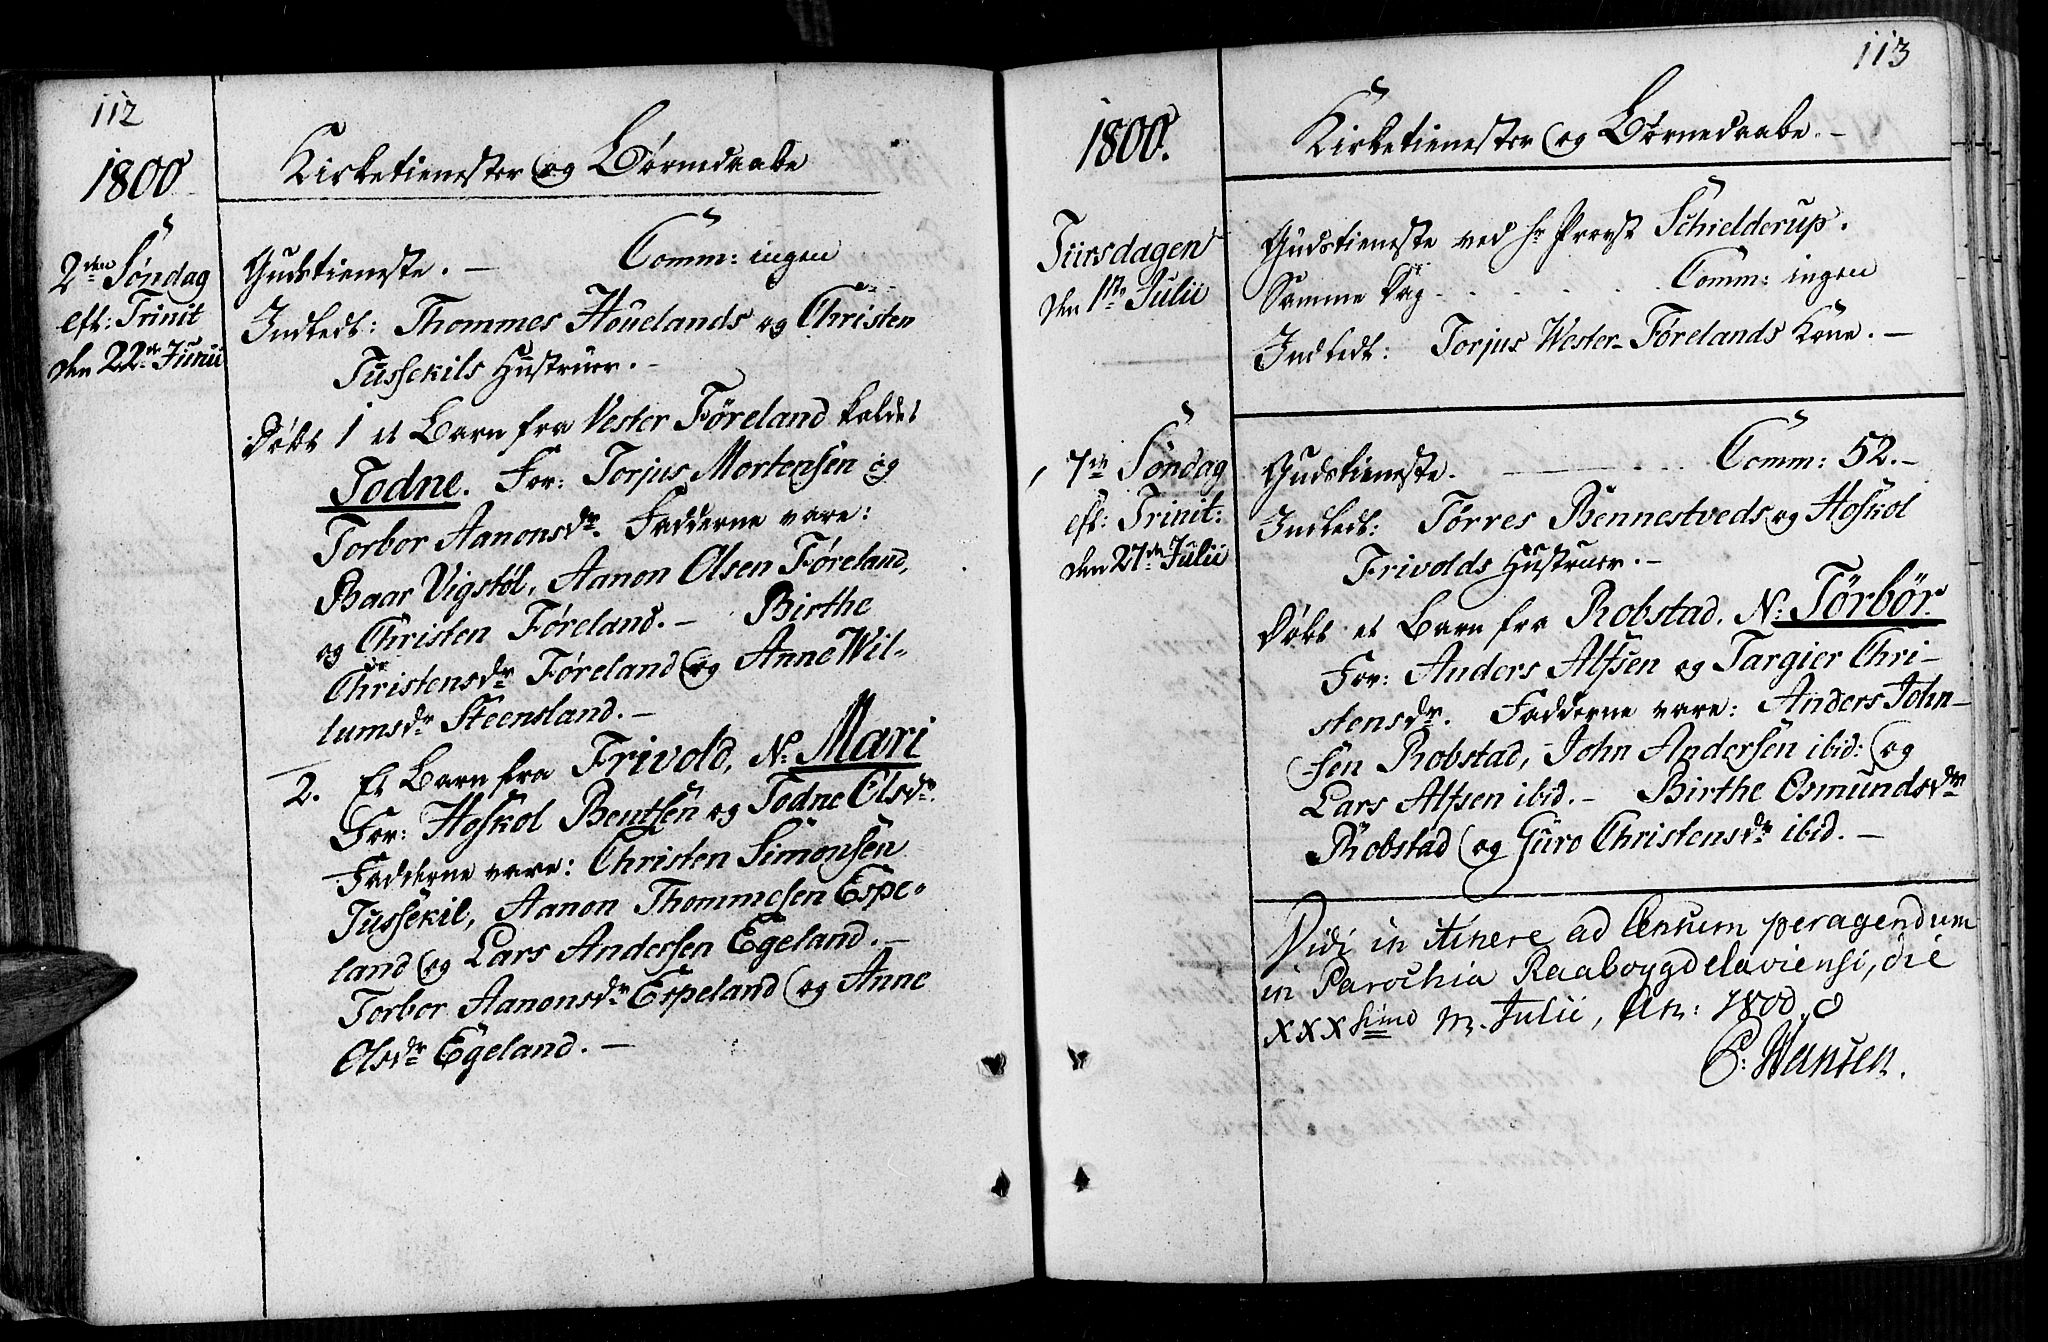 112
1800
Kirketienester og Børnedaabe
2den Søndag
eft: Trinit
den 22de Junii
Gudstieneste. – Comm: ingen
Indledt: Thommes Houelands og Christen
Tussekils Hustruer. –
Døbt 1 et Barn fra Vester Føreland kaldet
Todne. For: Torjus Mortensen og
Torbor Aanonsdr. Fadderne vare:
Baar Vigstøl, Aanon Olsen Føreland,
og Christen Føreland. – Birthe
Christensdr Føreland og Anne Wil-
lumsdr Steensland. –
2. Et Barn fra Frivold, N: Mari
For: Hoskol Bentsen og Todne Olsdr.
Fadderne vare: Christen Simonsen
Tussekil, Aanon Thommesen Espe-
land og Lars Andersen Egeland. –
Torbor Aanonsdr Espeland og Anne
Olsdr Egeland. –
113
1800.
Kirketienester og Børnedaabe. –
Tiirsdagen
den 1ste Julii
Gudstieneste ved Hr Provst Schielderup.
Samme Dag . . . . . Comm: ingen
Indledt: Torjus Wester-Førelands Kone. –
7de Søndag
eft: Trinit:
den 27de Julii
Gudstieneste. – Comm: 52. –
Indledt: Tørres Bennestveds og Hoskol
Frivolds Hustruer. –
Døbt et Barn fra Robstad. N: Tørbør.
For: Anders Alfsen og Targier Chri-
stensdr. Fadderne vare: Anders John-
sen Robstad, John Andersen ibid: og
Lars Alfsen ibid. – Birthe Osmundsdr
Robstad og Guro Christensdr ibid. –
Vidi in itinere ad Censum peragendum
in Parochia Raaboygdelaviensi, die
XXXsimo M. Julii, An: 1800.
P: Hansen.